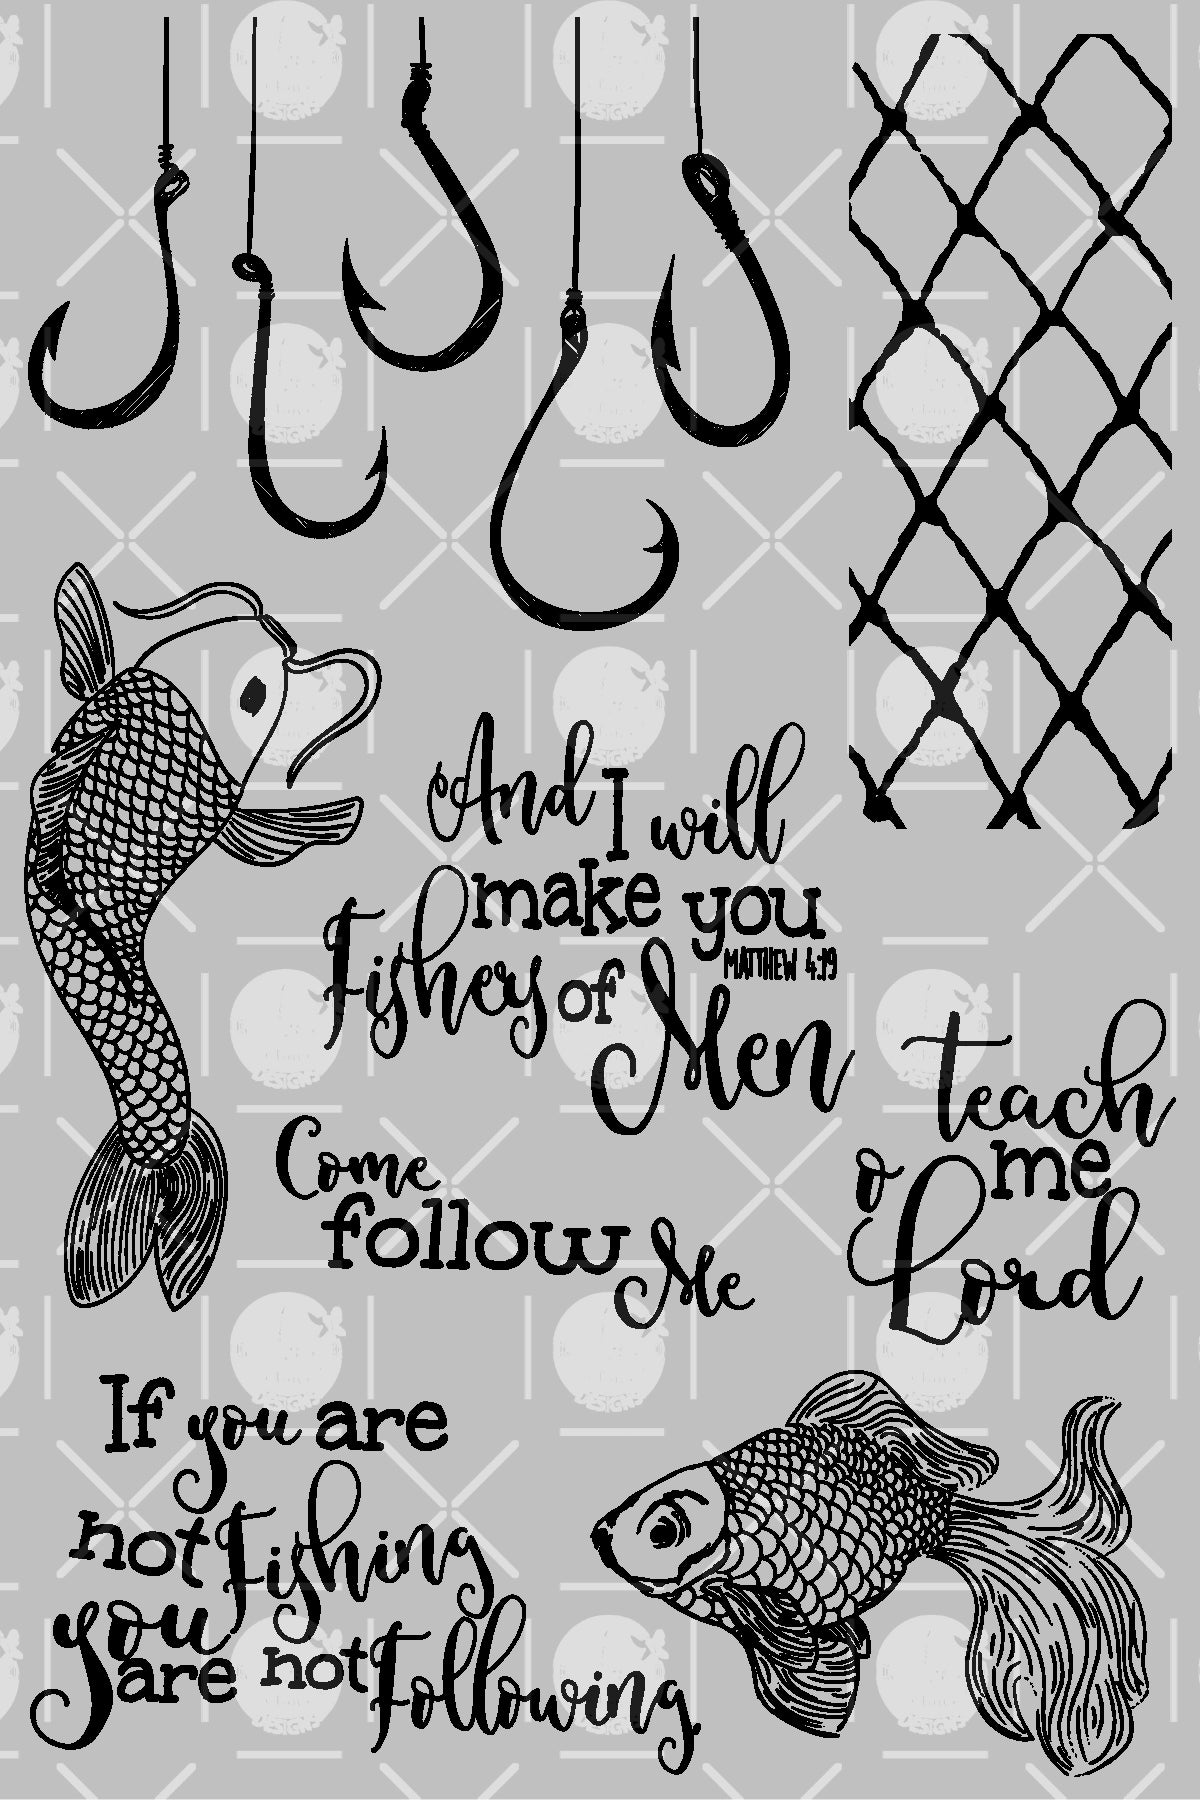 And I will
make you
MATTHEW 4:19
Fishers of
Men
teach
me
o Lord
Come
follow
Me
If you are
not Fishing
you
are not Following